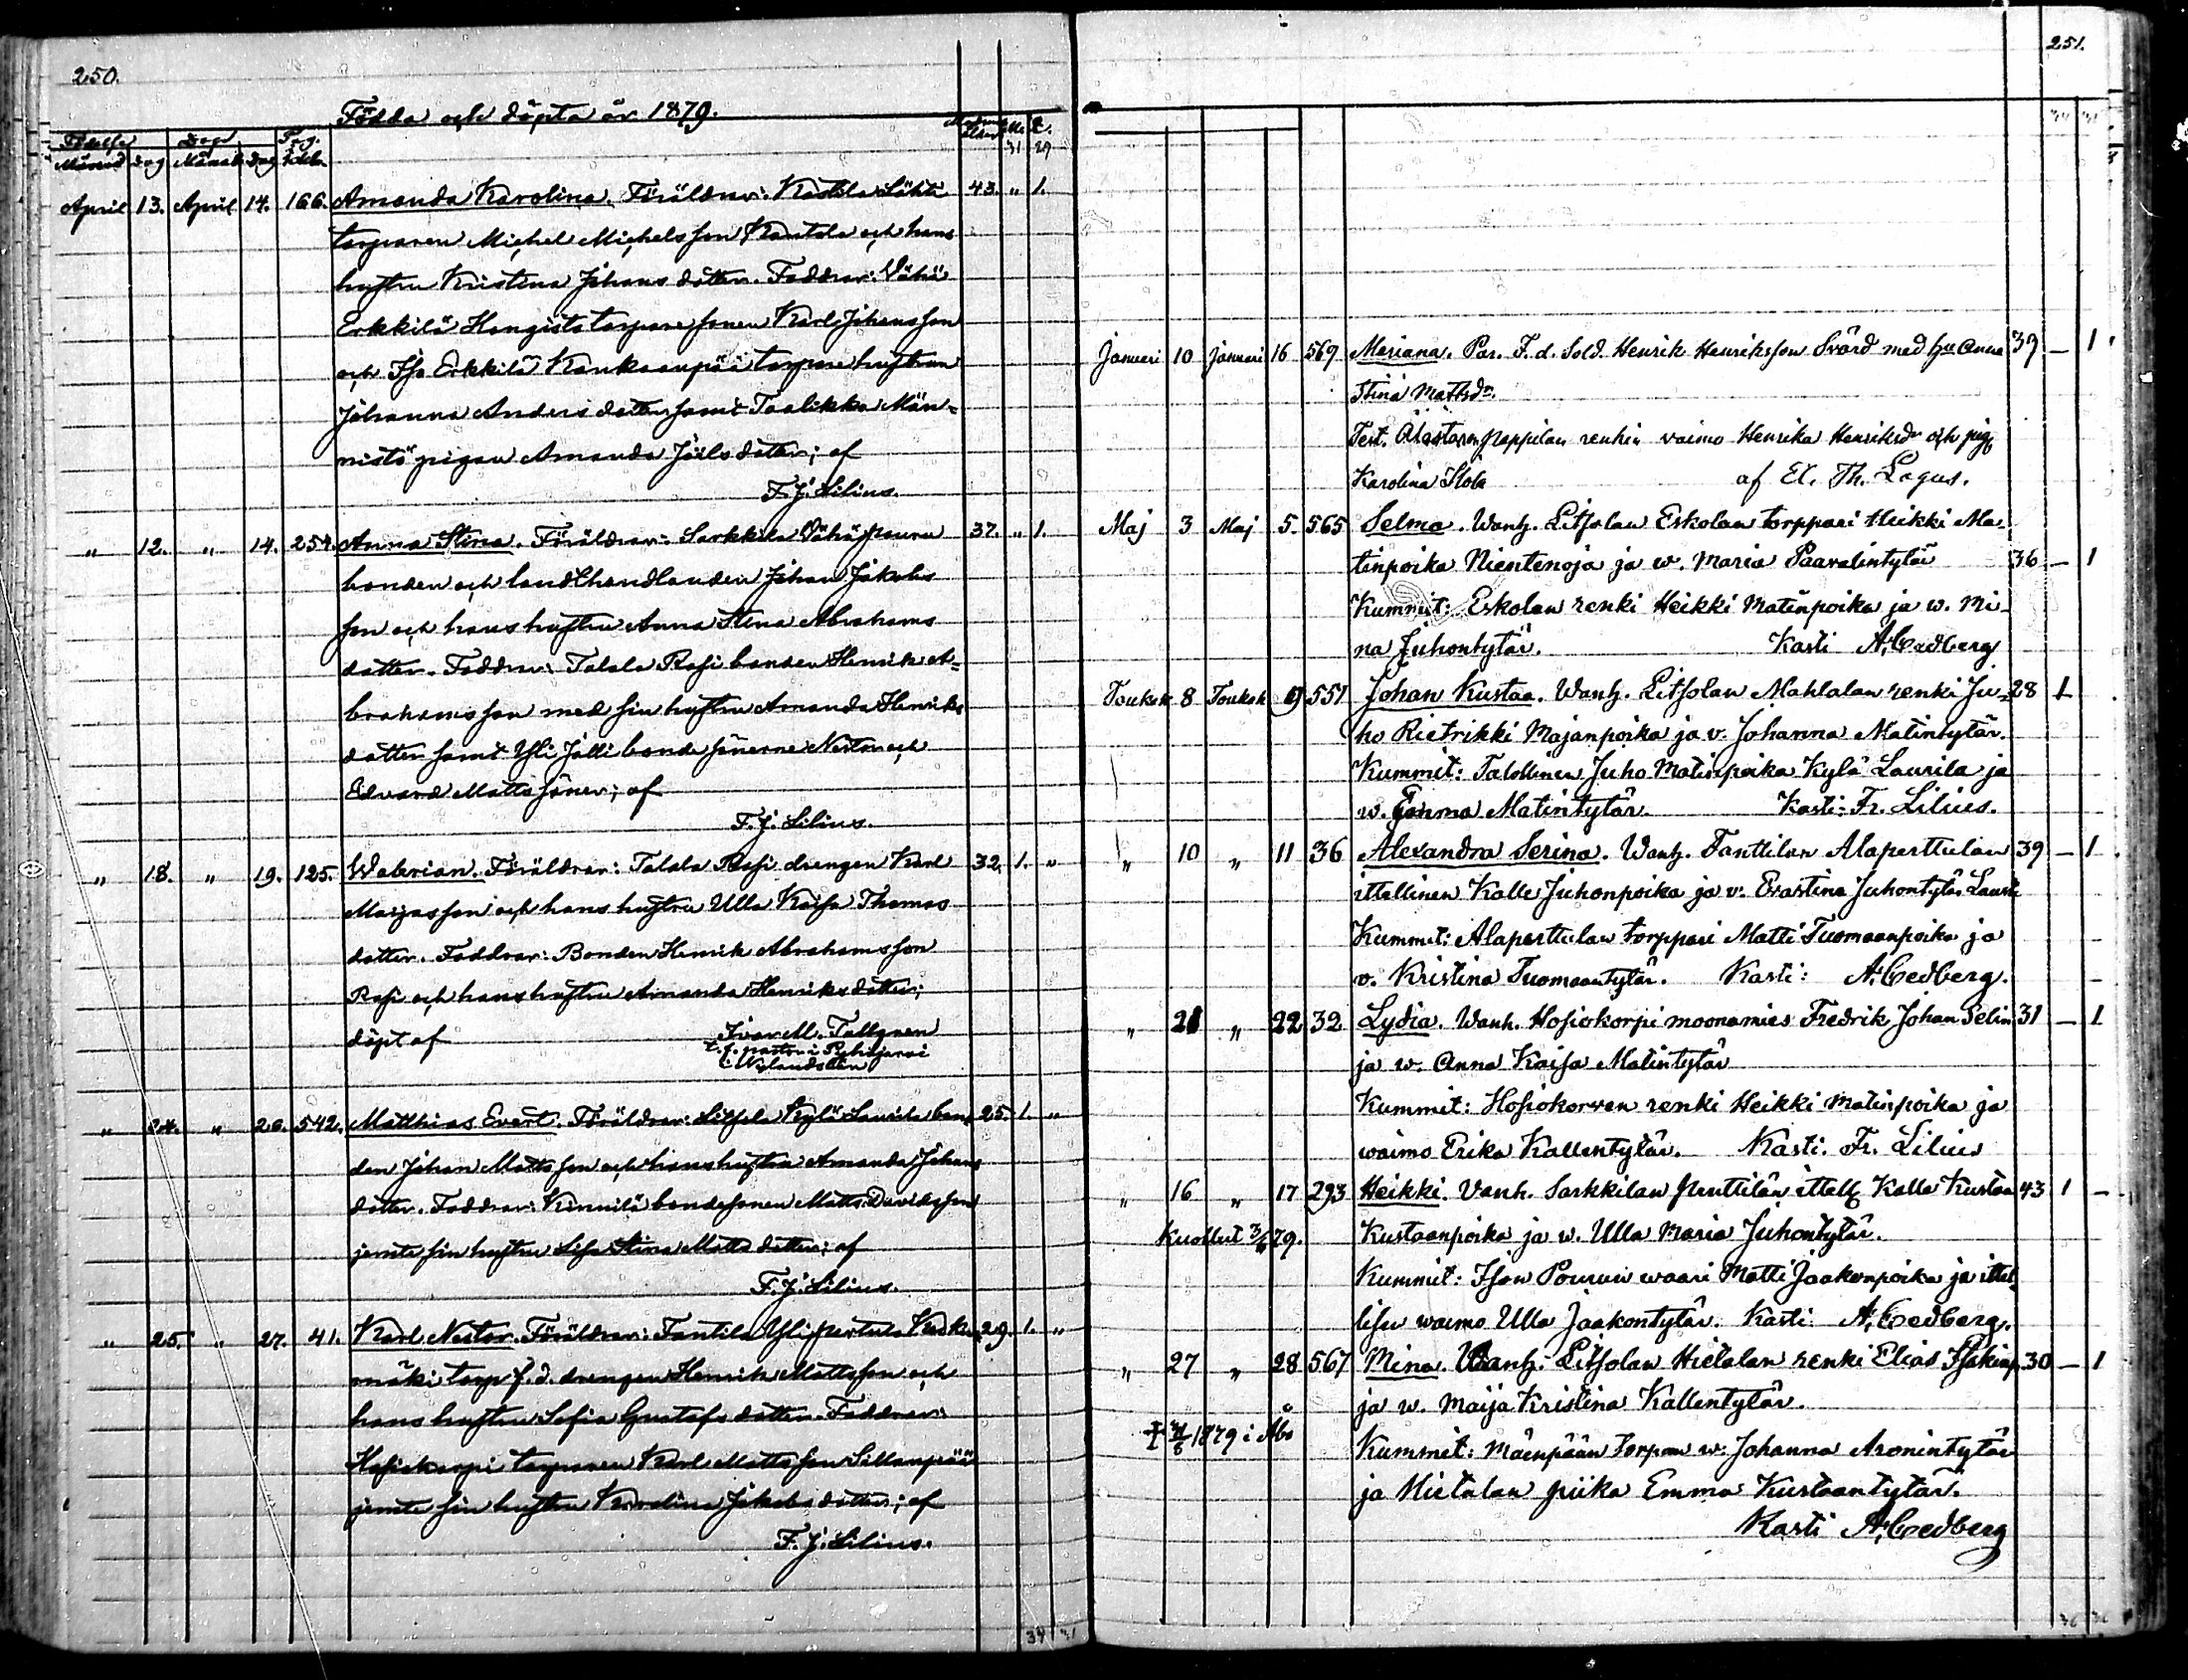 250.
Födda och döpta år 1879.
Månad dag Månad dag
31 29
April 13. April 14. 166. Amanda Karolina. Föräldrar: Lähti 43. " 1.
torparen Michel Michelsson Kantola och hans
hustru Kristina Johans dotter. Faddrar: Vähä
Erkkilä Hongisto torparesonen Karl Johansson
och Iso Erkkilä Kankaanpää torpare hustrun
Johanna Anders dotter samt Taalikka Män-
nistö pigan Amanda Joels dotter; af
F. J. Lilius.
" 12. " 14. 254. Anna Stina. Föräldrar: Sarkkila Vähä Pouru 37. " 1.
bonden och landthandlanden Johan Jakobs
son och hans hustru Anna Stina Abrahams
dotter. Faddrar: Talala Rasi bonden Henrik A-
brahamsson med sin hustru Amanda Henriks
dotter samt Yli Jalli bonde sönerne Nestor och
Edvard Matts söner; af
F. J. Lilius.
" 18. " 19. 125. Walerian. Föräldrar: Talala Rasi drengen Karl 32. 1. "
Maijasson och hans hustru Ulla Kaisa Thomas
dotter. Faddrar: Bonden Henrik Abrahamsson
Rasi och hans hustru Amanda Henriks dotter;
döpt af Ivar M. Tallgren
t. f. pastor i Pyhäjärvi
i Nylands län
" 24. " 26. 542. Matthias Evert. Föräldrar: Litsola Kylä Laurila bon- 25. 1. "
den Johan Matts son och hans hustru Amanda Johans
dotter. Faddrar: Kinnilä bondesonen Matts Davidsson
jemte sin hustru Lisa Stina Matts dotter; af
F. J. Lilius.
" 25. " 27. 41. Karl Nestor. Föräldrar: Fantila Ylipertula 29. 1. "
mäki torp f. d. drengen Henrik Mattsson och
hans hustru Sofia Gustafs dotter. Faddrar:
Hosiokorpi torparen Karl Matts son Sillanpää
jemte sin hustru Karolina Jakobs dotter; af
F. J. Lilius.
34 31
251.
Januari 10 januari 16 569 Mariana. Par. F. d. Sold. Henrik Henriksson Svärd med hu Anna 39 — 1
Stina Mattsdr.
Test. Alastaron pappilan renkin vaimo Henrika Henriksdr och pig
Karolina af El. Th. Lagus.
Maj 3 Maj 5. 565 Selma. Wanh. Litsolan Eskolan torppari Heikki Ma-
tinpoika Nientenoja ja w. Maria Paavalintytär 36 — 1
Kummit: Eskolan renki Heikki Matinpoika ja w. Mi-
na Juhontytär. Kasti A. Cedberg
Toukok 8 Toukok 9 557 Johan Kustaa. Wanh. Litsolan Mahlalan renki Ju- 28 1
ho Rietrikki Majanpoika ja v. Johanna Matintytär.
Kummit: Talollinen Juho Matinpoika Kylä Laurila ja
w. Matintytär. Kasti: Fr. Lilius.
" 10 " 11 36 Alexandra Serina. Wanh. Fanttilan Alaperttulan 39 — 1
ittellinen Kalle Juhonpoika ja v. Evastina Juhontytär
Kummit: Alaperttulan torppari Matti Tuomaanpoika ja
v. Kristina Tuomaantytär. Kasti: A. Cedberg.
" 21 " 22 32 Lydia. Wanh. Hosiokorpi moonamies Fredrik Johan Selin 31 — 1
ja w. Anna Kaisa Matintytär
Kummit: Hosiokorven renki Heikki Matinpoika ja
waimo Erika Kallentytär. Kasti. Fr. Lilius
" 16 " 17 293 Heikki. Vanh. Sarkkilan Penttilän ittell Kalle Kustaa 43 1 —
Kuollut 3/6 79. Kustaanpoika ja w. Ulla Maria Juhontytär.
Kummit: Ison Pourun waari Matti Jaakonpoika ja ittel
lisen waimo Ulla Jaakontytär. Kasti A. Cedberg.
" 27 " 28 567 Mina. Wanh. Litsolan Hietalan renki Elias Isakinp 30 — 1
ja w. Maija Kristina Kallentytär.
1879 i Åbo Kummit: Mäenpään torpan w. Johanna Aronintytär
ja Hietalan piika Emma Kustaantytär.
Kasti A. Cedberg